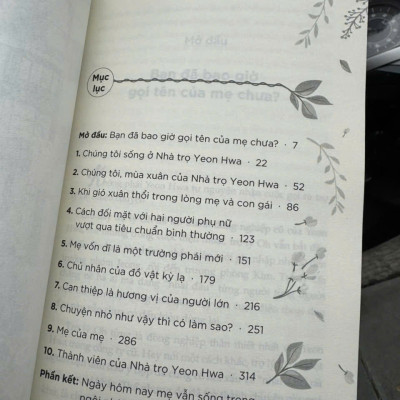 Mở đầu
Bạn đã bao giờ
gọi tên của mẹ chưa?
Mục
lục
Mở đầu: Bạn đã bao giờ gọi tên của mẹ chưa? · 7
1. Chúng tôi sống ở Nhà trọ Yeon Hwa · 22
2. Chúng tôi, mùa xuân của Nhà trọ Yeon Hwa · 52
3. Khi gió xuân thổi trong lòng mẹ và con gái · 86
4. Cách đối mặt với hai người phụ nữ
vượt qua tiêu chuẩn bình thường · 123
5. Mẹ vốn dĩ là một trường phái mới · 151
6. Chủ nhân của đồ vật kỳ lạ · 179
7. Can thiệp là hương vị của người lớn · 216
8. Chuyện nhỏ như vậy thì có làm sao? · 251
9. Mẹ của mẹ · 286
10. Thành viên của Nhà trọ Yeon Hwa · 314
Phần kết: Ngày hôm nay mẹ vẫn sống trong